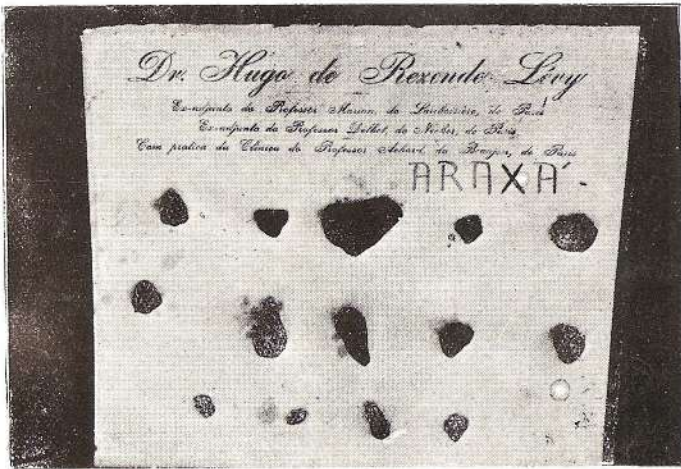 Dr. Hugo de Rezende Lévy
Ex-adjunto do Professor Marion, do Lariboisière, de Paris
Ex-adjunto do Professor Delbet, do Necker, de Paris
Com pratica da Clinica do Professor Achard, do Beaujon, de Paris
ARAXÁ